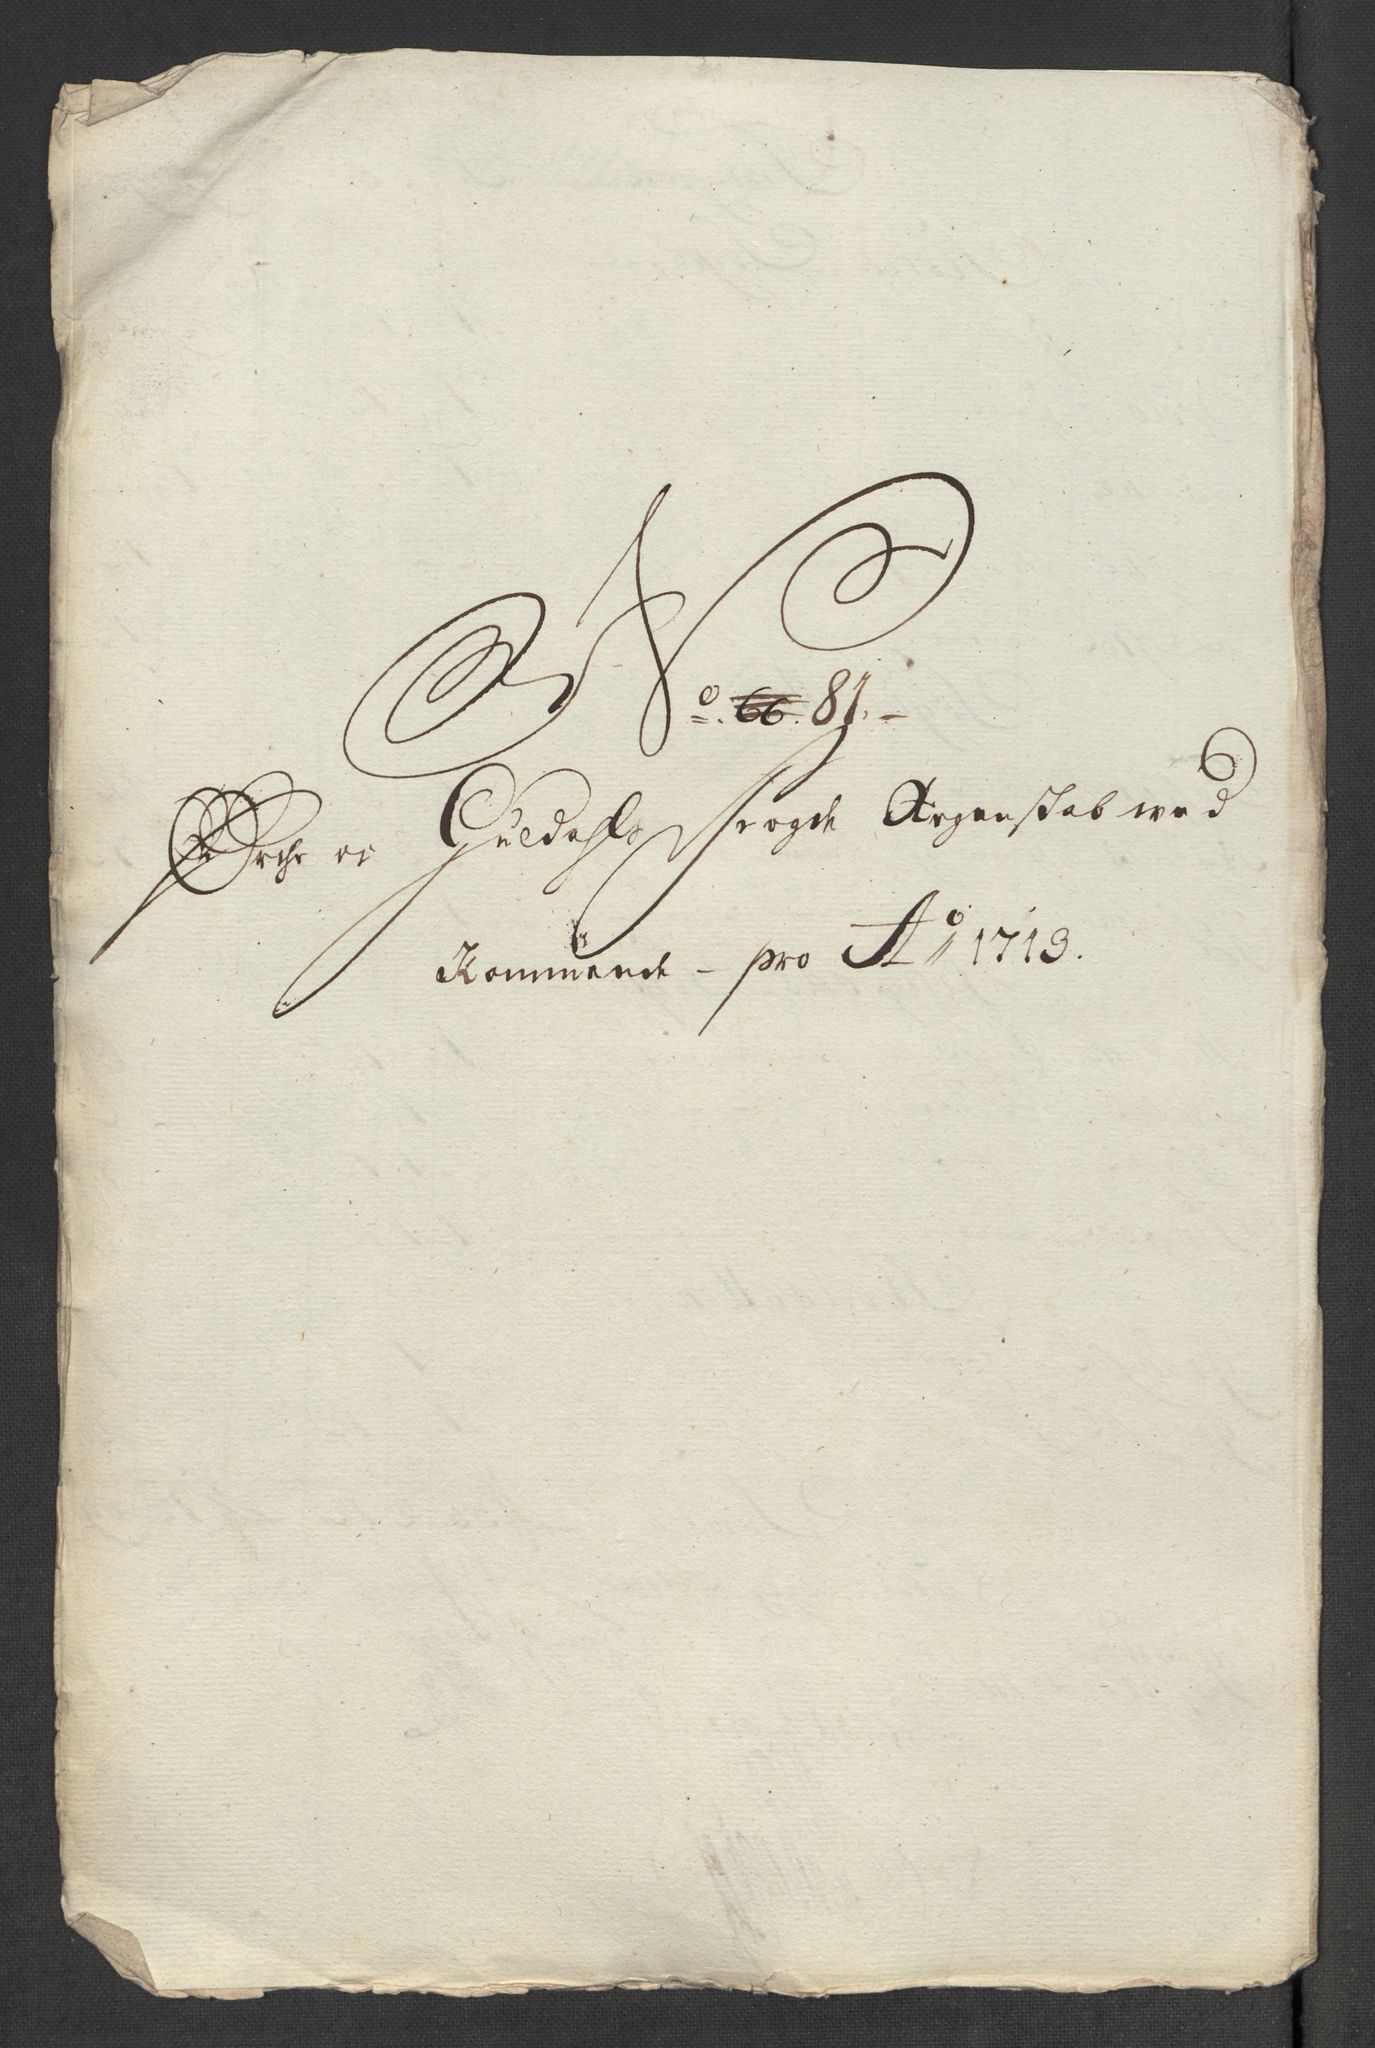 No. 66. 81.-
Orche oc Guldahls fogde Regenskab wed
Kommende - pro Ao 1713.